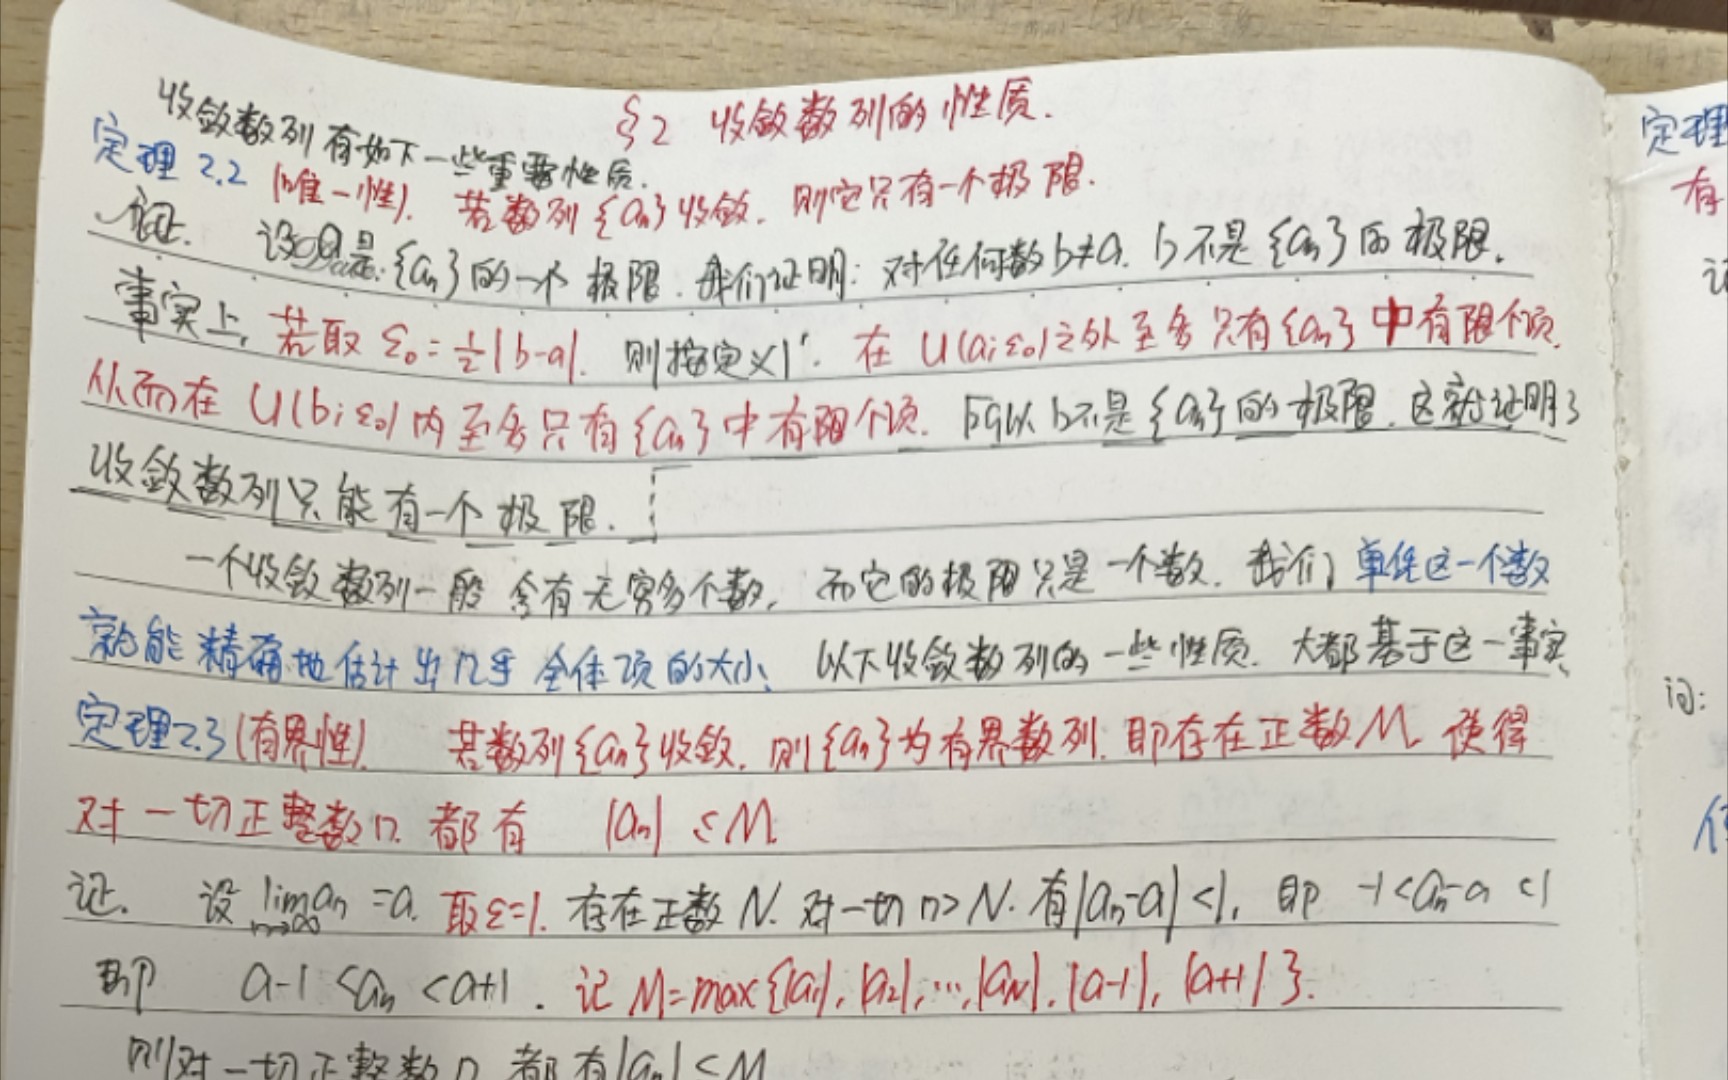 §2 收敛数列的性质.
收敛数列有如下一些重要性质.
定理2.2 (唯一性). 若数列{aₙ}收敛, 则它只有一个极限.
证. 设a是{aₙ}的一个极限. 我们证明: 对任何数b≠a. b不是{aₙ}的极限.
事实上, 若取 ε₀=½|b-a|. 则按定义1'. 在U(a;ε₀)之外至多只有{aₙ}中有限个项.
从而在U(b;ε₀)内至多只有{aₙ}中有限个项. 所以b不是{aₙ}的极限. 这就证明了
收敛数列只能有一个极限.
一个收敛数列一般含有无穷多个数, 而它的极限只是一个数. 我们单凭这一个数
就能精确地估计出几乎全体项的大小、以下收敛数列的一些性质. 大都基于这一事实
定理2.3(有界性). 若数列{aₙ}收敛. 则{aₙ}为有界数列. 即存在正数M. 使得
对一切正整数n. 都有 |aₙ| ≤ M
证. 设 lim aₙ = a. 取ε=1. 存在正数N. 对一切n>N. 有|aₙ-a|<1, 即 -1<aₙ-a<1
n→∞
即 a-1<aₙ<a+1. 记 M=max{|a₁|, |a₂|, …, |a_N|, |a-1|, |a+1|}.
则对一切正整数n 都有|aₙ|≤M
定理
有
问: